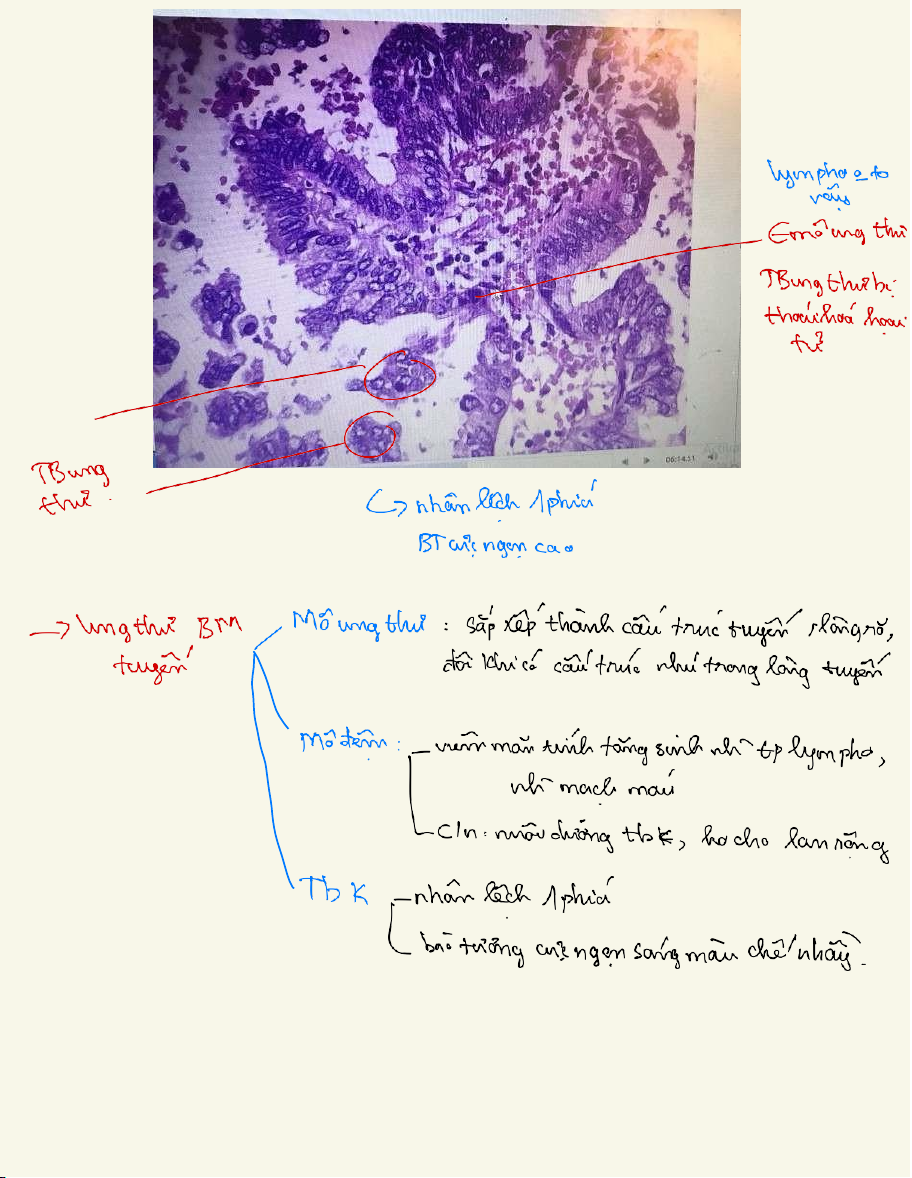 lympho
mô ung thư
TB ung thư bị
thoái hoá hoại
tử
06:14:51
TB ung
thư
↳ nhân lệch 1 phía
BT cực ngọn cao
→ Ung thư BM
tuyến
Mô ung thư : sắp xếp thành cấu trúc tuyến rõ,
đôi khi có cấu trúc như trong lòng tuyến
Mô đệm : viêm mãn tính tăng sinh nh~ tb lympho,
nh~ mạch máu
C/n : nuôi dưỡng tb K, lan rộng
Tb K
nhân lệch 1 phía
bào tương cực ngọn sáng màu chế nhầy.